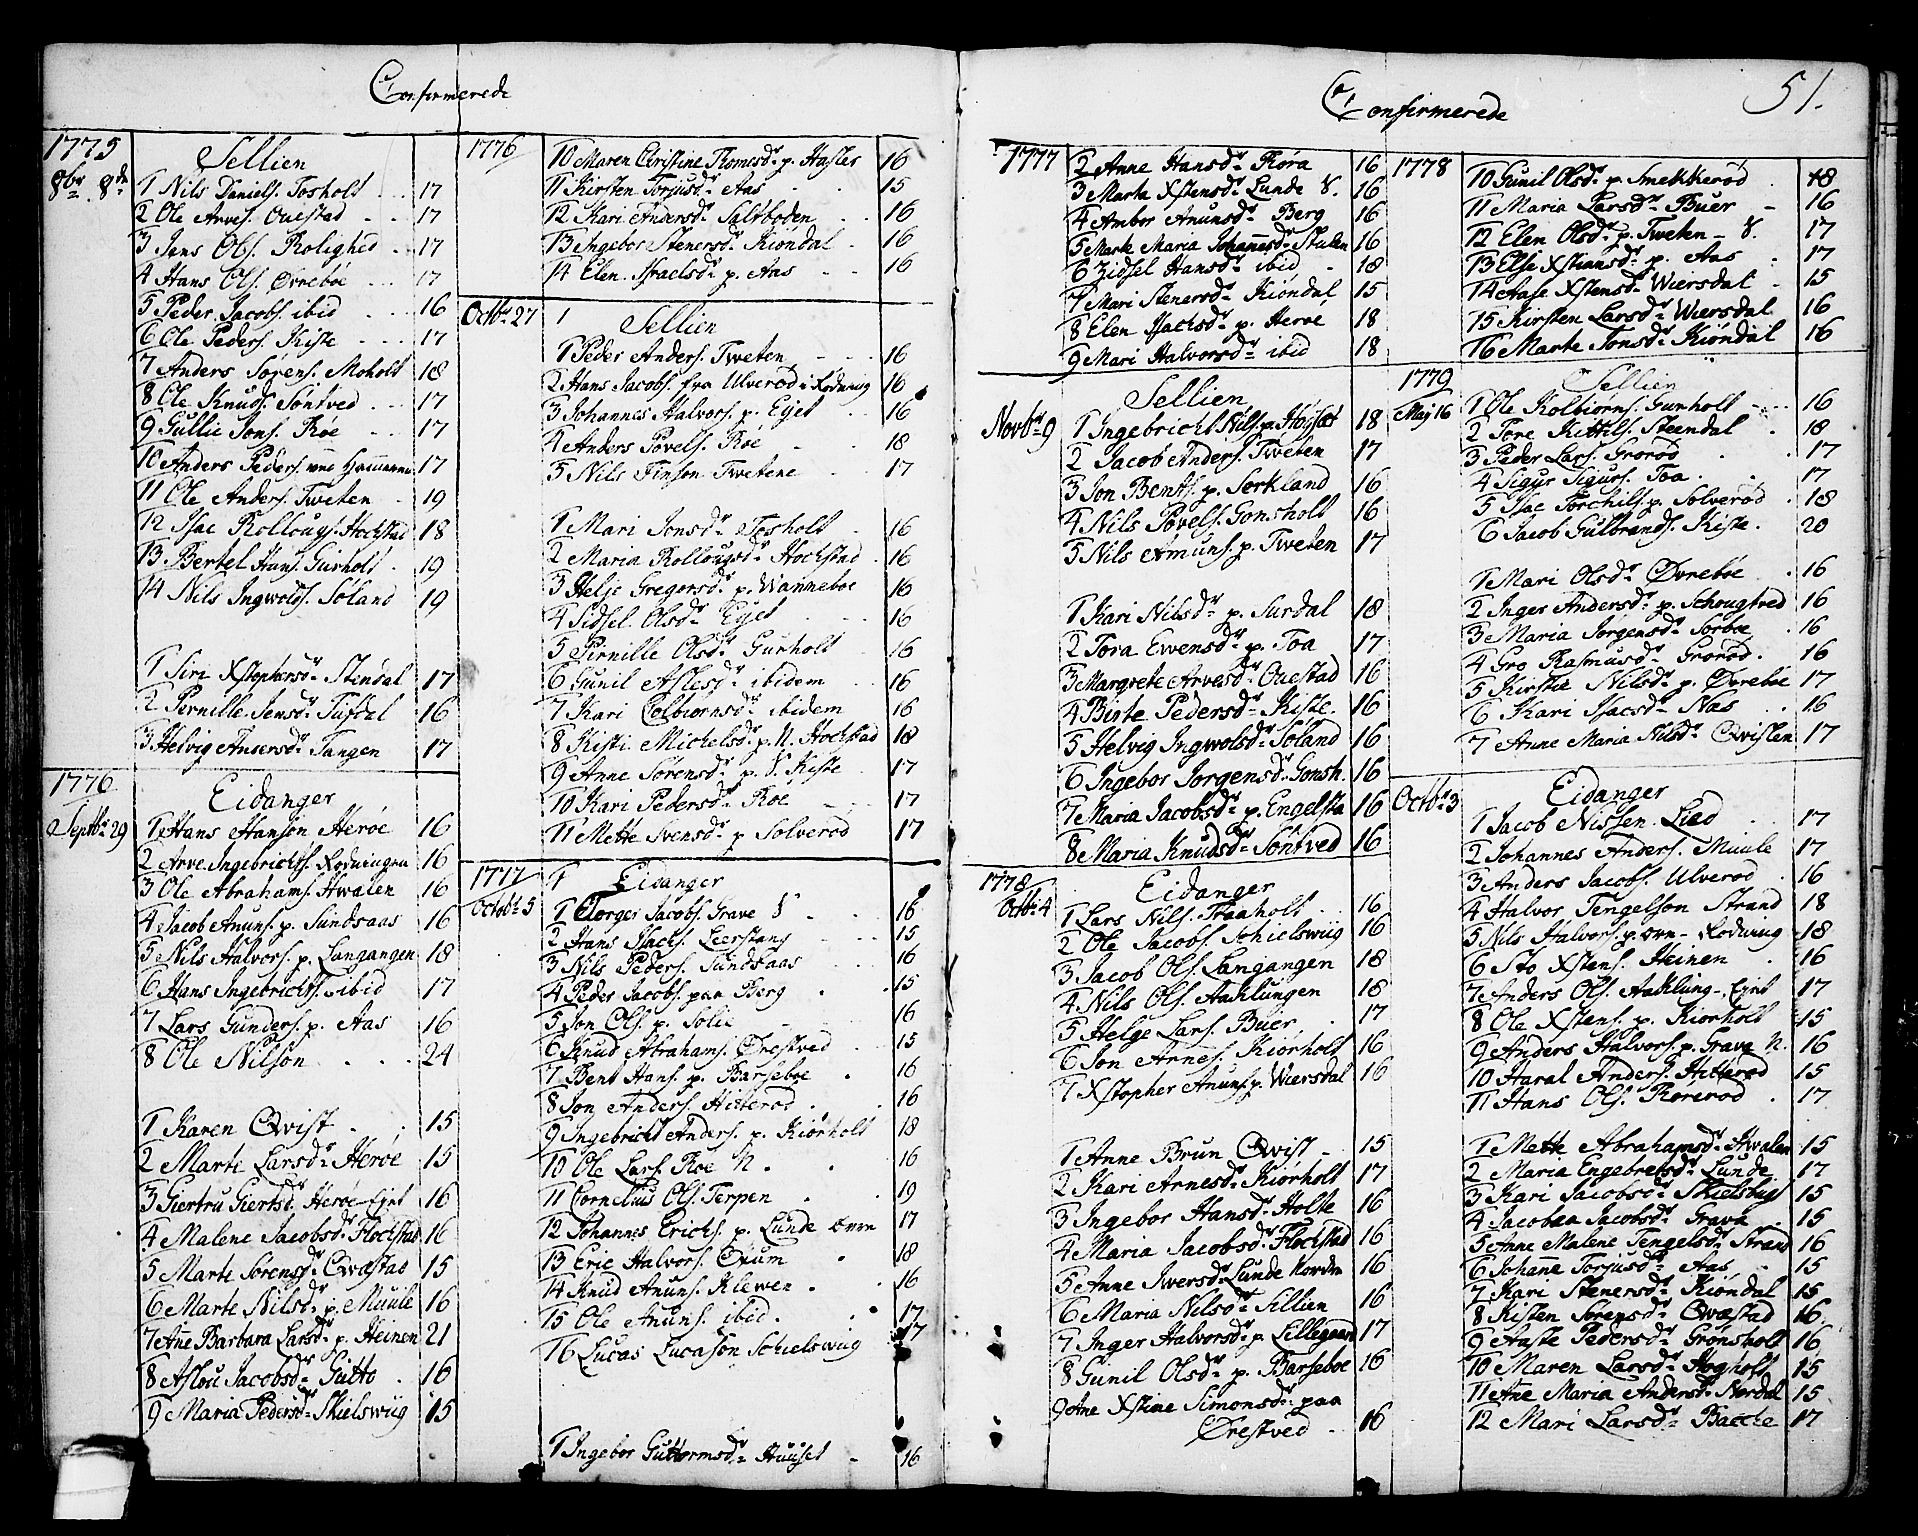 Confirmerede
1775
8br. 8de
Sellien
1 Nils Daniels. Tosholt 17
2 Ole Arves. Ouestad 17
3 Jens Ols. Rolighed 17
4 Hans Ols. Øvrebøe 17
5 Peder Jacobs. ibid 16
6 Ole Peders. Kiste 17
7 Anders Sørens. Moholt 18
8 Ole Knuds. Søntved 17
9 Gullic Jons. Røe 17
10 Anders Peders. 17
11 Ole Anders. Tweten 19
12 Isac Rollougs. Hochstad 18
13 Bertel Hans. Gurholt 19
14 Nils Ingwolds. Søland 19
1 Siri Xstophersdr. Stendal 17
2 Pernille Jensdr. Tufdal 16
3 Helvig Ansersdr. Tangen 17
1776
Septbr 29
Eidanger
1 Hans Hansøn Herøe 16
2 Arve Ingebrichts. Rodningen 16
3 Ole Abrahams. Hwalen 16
4 Jacob Anuns. p. Sundsaas 16
5 Nils Halvors. p. Langangen 18
6 Hans Ingebrichts. ibid 17
7 Lars Gunders. p. Aas 16
8 Ole Nilsøn 24
1 Karen Qvist 15
2 Marte Larsdr. Herøe 15
3 Giertru Giertsdr. Herøe Eynt 16
4 Malene Jacobsdr. Flochstad 16
5 Marte Sørensdr. Qvæstad 15
6 Marte Nilsdr. p. Muule 16
7 Ane Barbara Larsdr. p. Heinen 21
8 Aslou Jacobsdr. Gutto 16
9 Maria Pedersdr. Skielswiig 15
1776
10 Maren Christine Thomesdr. p. Hasler 16
11 Kirsten Torjusdr. Aas 15
12 Kari Ansersdr. Saltboden 16
13 Ingebor Stenersdr. Kiøndal 16
14 Elen Isaelsdr. p. Aas 16
Octbr 27
Sellien
1 Peder Anders. Tweten 16
2 Hans Jacobs. fra Ulverød i Rodning 16
3 Johannes Halvors. p. Eyet 16
4 Anders Povels. Røe 18
5 Nils Finsøn Twetene 17
1 Mari Jonsdr. Tosholt 16
2 Maria Rollougsdr. Hochstad 16
3 Helje Gregorsdr. p. Wanneboe 16
4 Sidsel Olsdr. Eyet 16
5 Pirnille Olsdr. Gurholt 16
6 Gunil Aslesdr. ibidem 16
7 Kari Colbiørnsdr. ibidem 16
8 Kisti Michelsdr. p. N. Hochstad 18
9 Anne Sørensdr. p. S. Kiste 17
10 Kari Pedersdr. Roe 17
11 Mette Svensdr. p Solverød 17
1777
Octobr 5
Eidanger
1 Torger Jacobs. Grave S 16
2 Hans Isachs. Leerstang 15
3 Nils Peders. Sundsaas 16
4 Peder Jacobs. paa Berg 15
5 Jon Ols. p. Solie 16
6 Knud Abrahams. Ørestved 15
7 Bent Hans. p. Barseboe 16
8 Jon Anders. Hitterød 16
9 Ingebricht Anders. p. Kiorholt 18
10 Ole Lars. Roe N. 16
11 Cornelius Ols. Terpen 19
12 Johannes Erichs. p. Lunde øvre 17
13 Eric Halvors. Ørum 18
14 Knud Anuns. Klewen 16
15 Ole Anuns. ibid. 17
16 Lucas Lucasøn Schielswiig 17
1 Ingebor Guttormsdr. Huuset 16
Confirmerede
51.
1777
2 Anne Hansdr. Røra 16
3 Marta Xstensdr. Lunde S. 16
4 Ambor Anunsdr. Berg 16
5 Marte Maria Johannesdr. Stulen 16
6 Zidsel Hansdr. ibid 18
7 Mari Stenersdr. Kiøndal 15
8 Elen Isachsdr. p. Herøe 18
9 Mari Halvorsdr. ibid 18
Novbr 9
Sellien
1 Ingebricht Nils. p. Høyset 18
2 Jacob Anders. Tweten 17
3 Jon Bents. p. Sorkland 16
4 Nils Povels. Gonsholt 16
5 Nils Amuns. p. Tweten 17
1 Kari Nilsdr. p. Surdal 18
2 Tora Ewensdr. p. Toa 17
3 Margrete Arvesdr. Ouestad 16
4 Birte Pedersdr. Kiste. 16
5 Helvig Ingwolsdr. Søland 16
6 Ingebor Jorgensdr. Gonsh. 16
7 Maria Jacobsdr. p. Engelsta 16
8 Maria Knudsdr. Søntved 16
1778
Octbr 4
Eidanger
1 Lars Nils. Traaholt 16
2 Ole Jacobs. Schielswiig 16
3 Jacob Ols. Langangen 18
4 Nils Ols. Aaklungen 18
5 Helge Lars. Buer. 17
6 Jon Arnes. Kiorholt 16
7 Xstopher Anuns. p. Wiersdal 16
1 Anne Brun Qvist 15
2 Kari Arnesdr. Kiorholt 17
3 Ingebor Hansdr. Holte 16
4 Maria Jacobsdr. Flochstad 16
5 Anne Iwersdr. Lunde Nordre 16
6 Maria Nilsdr. Sillien 16
7 Inger Halvorsdr. p. Lillegaar 17
8 Gunil Olsdr. p. Barseboe 16
9 Ane Xstine Simonsdr. paa
Ørestved 16
1778
10 Gunil Olsdr. p. Smekkerød 18
11 Maria Larsdr. Buer 16
12 Elen Olsdr. p. Tweten S. 17
13 Else Xstiansdr. p. Aas 17
14 Aase Xstensdr. Wiersdal 15
15 Kirsten Larsdr. Wiersdal 16
16 Marte Jonsdr. Kiöndal 16
1779
Maj 16
Sellien
1 Ole Kolbiørns. Gurholt 16
2 Tore Kittils. Steendal 18
3 Peder Lars. Grorød 17
4 Sigur Sigurs. Toa 17
5 Isac Torchils. p. Solverød 18
6 Jacob Gulbrands. Kiste. 20
1 Mari Olsdr. Øvreboe 16
2 Inger Andersdr. p. Schougtved 16
3 Maria Jorgensdr. Sorboe 16
4 Gro Rasmusdr. Grorød. 16
5 Kirstie Nilsdr. p. Øvreboe 17
6 Kari Isacsdr. Næs 16
7 Anne Maria Nilsdr. Qvisten 17
Octbr 3
Eidanger
1 Jacob Nissen Lied 17
2 Johannes Anders. Muule 17
3 Anders Jacobs. Ulverød 16
4 Halvor Tengelsøn Strand 18
5 Nils Halvors. p. øvre Rodning 18
6 Sto Xstens. Heinen 16
7 Anders Ols. Aaklung Eynt 17
8 Ole Xstens. p. Kiorholt 15
9 Anders Halvors. p. Grava N. 16
10 Haral Anders. Hitterød 15
11 Hans Ols. Rørerød 17
1 Mette Abrahamsdr. Hwalen 15
2 Maria Engebretsdr. Lunde 17
3 Kari Jacobsdr. Skielsvig 15
4 Jacobaa Jacobsdr. Grava 15
5 Anne Malene Tengelsdr. Strand 16
6 Johanne Torjusdr. Aas 15
7 Kari Stenersdr. Kiöndal 15
8 Kisten Sørensdr. Qvæstad 16
9 Aaste Pedersdr. Grønsholt 16
10 Maren Larsdr. Høgholt 15
11 Ane Maria Andersdr. Nordal 15
12 Mari Larsdr. Bacche 17